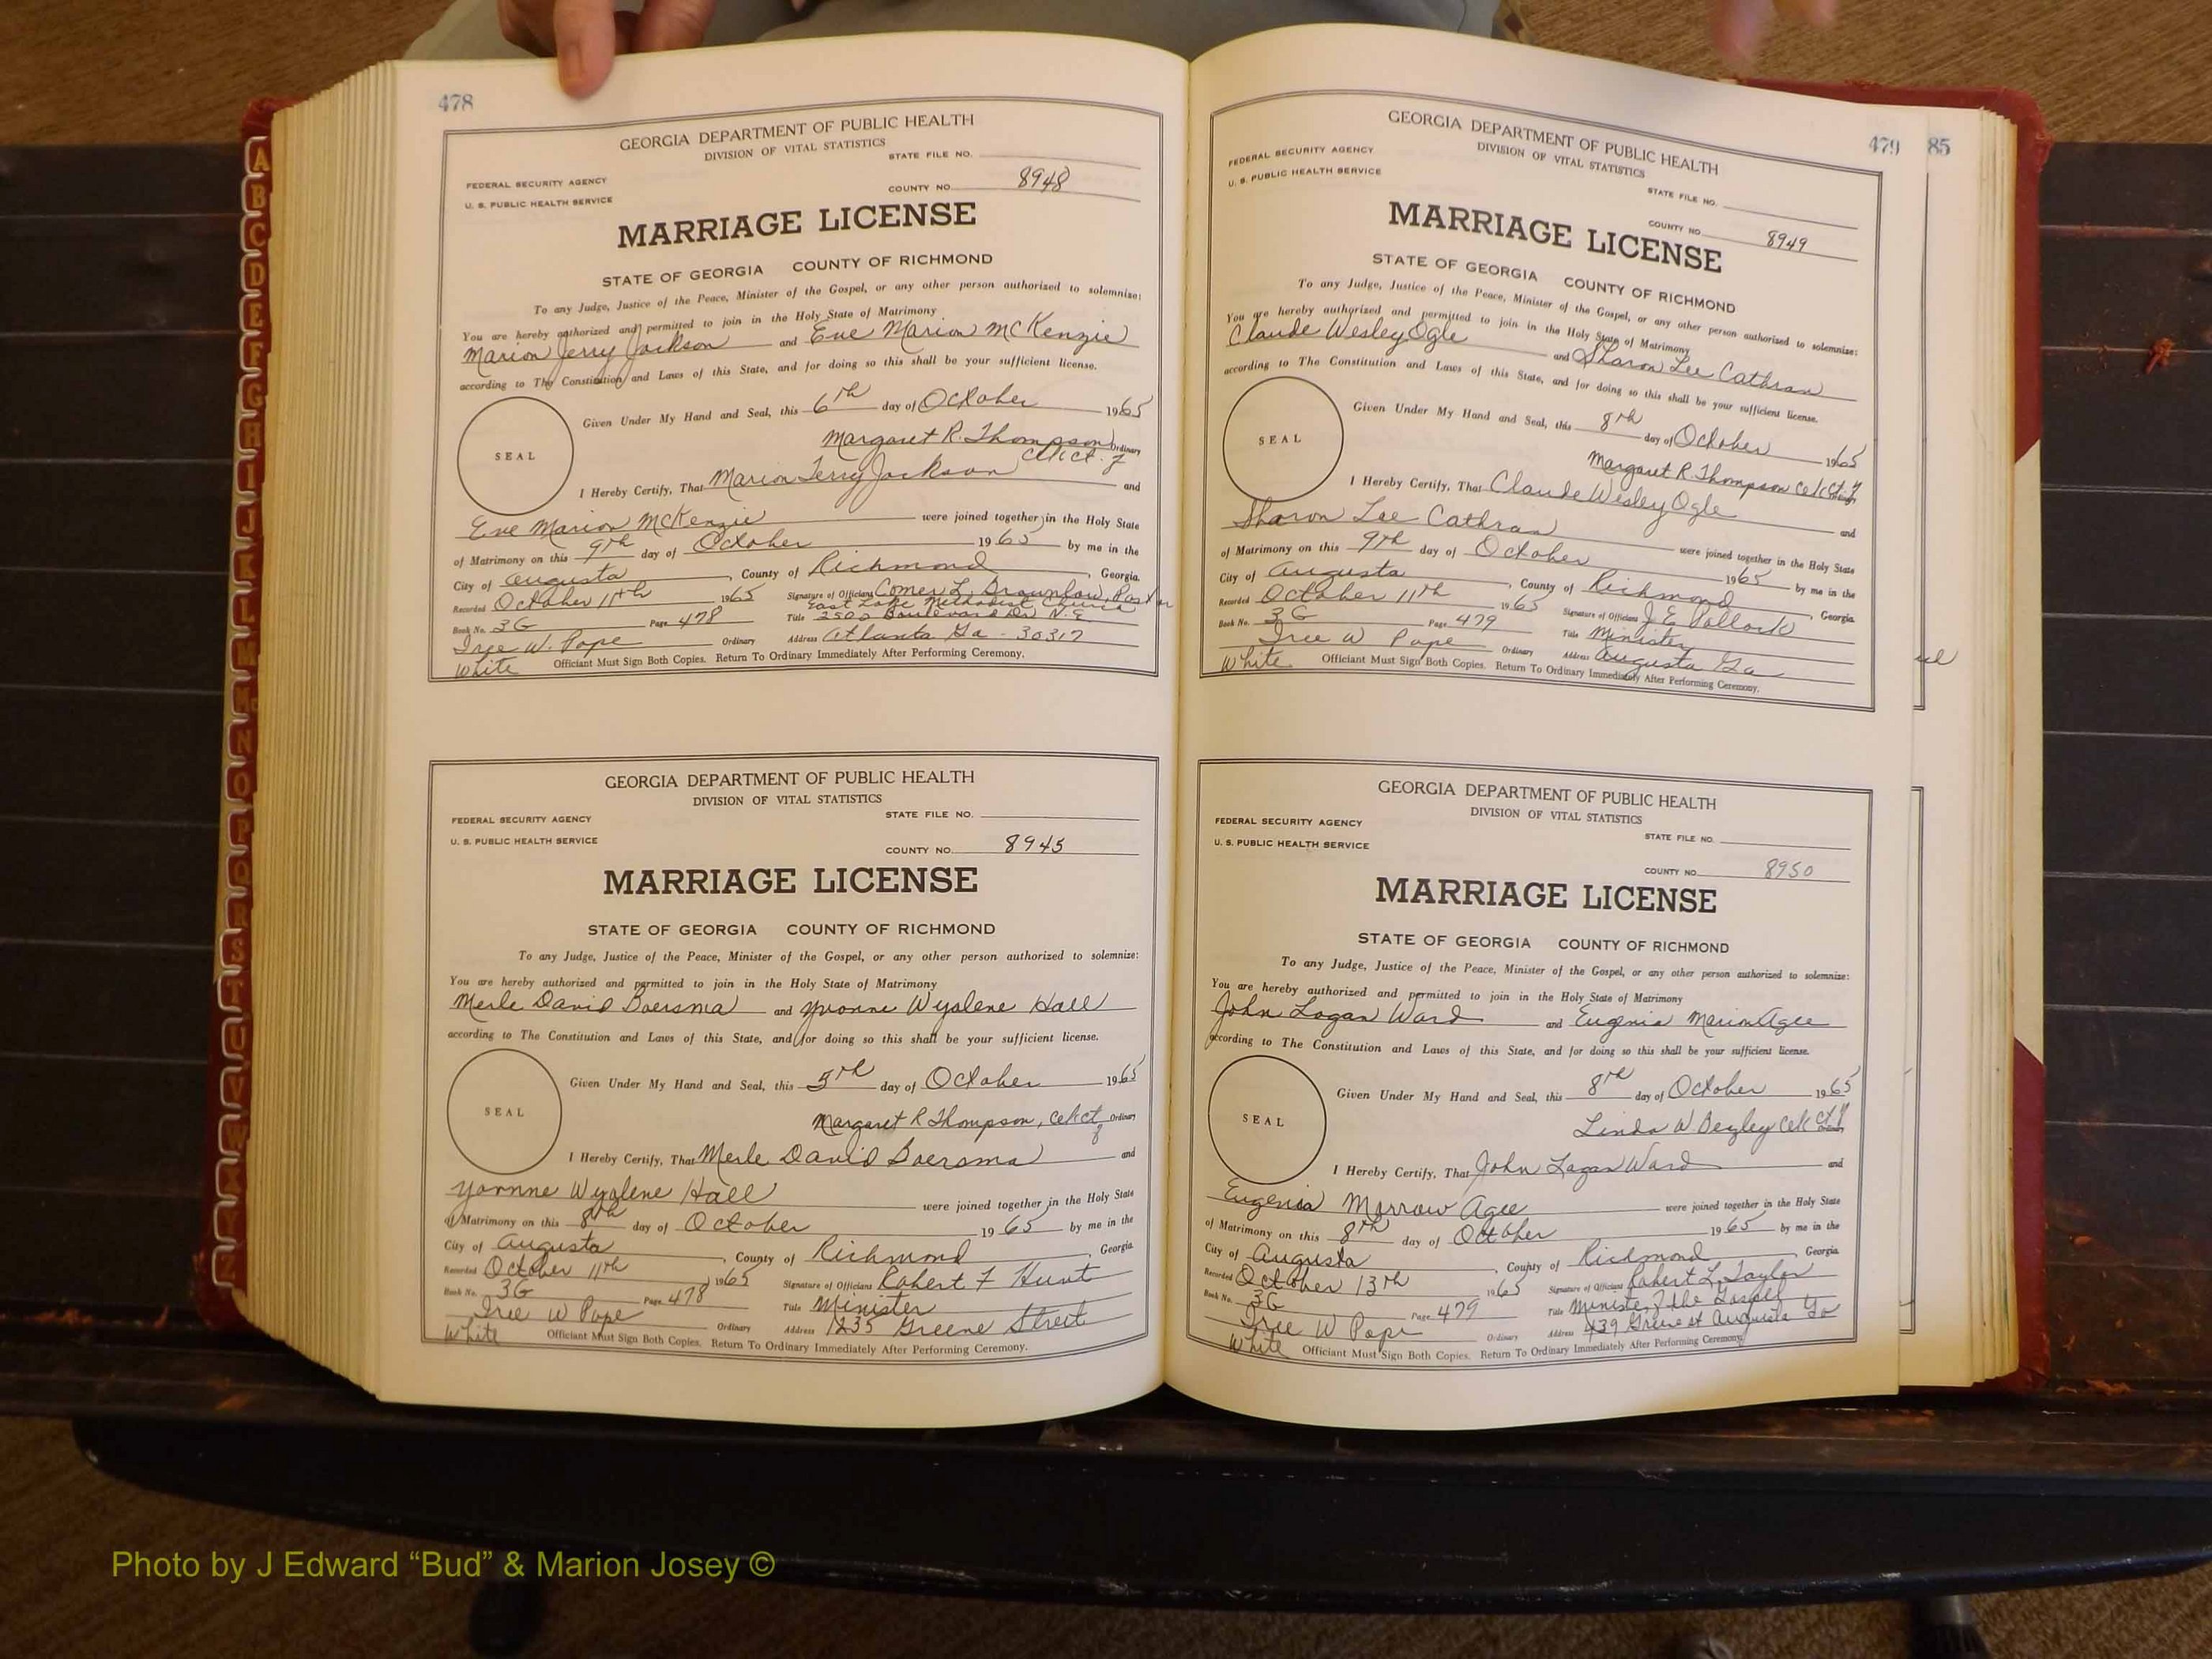 478
GEORGIA DEPARTMENT OF PUBLIC HEALTH
DIVISION OF VITAL STATISTICS
STATE FILE NO.
FEDERAL SECURITY AGENCY
U. S. PUBLIC HEALTH SERVICE
COUNTY NO. 8948
MARRIAGE LICENSE
STATE OF GEORGIA COUNTY OF RICHMOND
To any Judge, Justice of the Peace, Minister of the Gospel, or any other person authorized to solemnize:
You are hereby authorized and permitted to join in the Holy State of Matrimony
Marion Jerry Jackson and Eve Marion McKenzie
according to The Constitution and Laws of this State, and for doing so this shall be your sufficient license.
Given Under My Hand and Seal, this 6th day of October 1965
SEAL
Margaret R. Thompson Ordinary
I Hereby Certify, That Marion Jerry Jackson and
Eve Marion McKenzie were joined together in the Holy State
of Matrimony on this 9th day of October 1965 by me in the
City of Augusta, County of Richmond, Georgia.
Recorded October 11th 1965 Signature of Officiant Comer L. Brownlow, Pastor
East Lake Methodist Church
Book No. 3G Page 478 Title 2500 Boulevard Dr N.E.
Iree W. Pope Ordinary Address Atlanta Ga - 30317
White Officiant Must Sign Both Copies. Return To Ordinary Immediately After Performing Ceremony.
GEORGIA DEPARTMENT OF PUBLIC HEALTH
DIVISION OF VITAL STATISTICS
STATE FILE NO.
FEDERAL SECURITY AGENCY
U. S. PUBLIC HEALTH SERVICE
COUNTY NO. 8945
MARRIAGE LICENSE
STATE OF GEORGIA COUNTY OF RICHMOND
To any Judge, Justice of the Peace, Minister of the Gospel, or any other person authorized to solemnize:
You are hereby authorized and permitted to join in the Holy State of Matrimony
Merle David Boersma and Yvonne Wyolene Hall
according to The Constitution and Laws of this State, and for doing so this shall be your sufficient license.
Given Under My Hand and Seal, this 5th day of October 1965
SEAL
Margaret R Thompson, Ordinary
I Hereby Certify, That Merle David Boersma and
Yvonne Wyolene Hall were joined together in the Holy State
of Matrimony on this 8th day of October 1965 by me in the
City of Augusta, County of Richmond, Georgia.
Recorded October 11th 1965 Signature of Officiant Robert F Hunt
Book No. 3G Page 478 Title Minister
Iree W Pope Ordinary Address 1235 Greene Street
White Officiant Must Sign Both Copies. Return To Ordinary Immediately After Performing Ceremony.
479 85
GEORGIA DEPARTMENT OF PUBLIC HEALTH
DIVISION OF VITAL STATISTICS
FEDERAL SECURITY AGENCY
U. S. PUBLIC HEALTH SERVICE
STATE FILE NO.
COUNTY NO. 8949
MARRIAGE LICENSE
STATE OF GEORGIA COUNTY OF RICHMOND
To any Judge, Justice of the Peace, Minister of the Gospel, or any other person authorized to solemnize:
You are hereby authorized and permitted to join in the Holy State of Matrimony
Claude Wesley Ogle and Sharon Lee Cathran
according to The Constitution and Laws of this State, and for doing so this shall be your sufficient license.
Given Under My Hand and Seal, this 8th day of October 1965
SEAL
Margaret R. Thompson
I Hereby Certify, That Claude Wesley Ogle and
Sharon Lee Cathran were joined together in the Holy State
of Matrimony on this 9th day of October 1965 by me in the
City of Augusta, County of Richmond, Georgia.
Recorded October 11th 1965 Signature of Officiant J. E. Pollock
Book No. 3G Page 479 Title Minister
Iree W Pope Ordinary Address Augusta Ga
White Officiant Must Sign Both Copies. Return To Ordinary Immediately After Performing Ceremony.
GEORGIA DEPARTMENT OF PUBLIC HEALTH
DIVISION OF VITAL STATISTICS
FEDERAL SECURITY AGENCY
U. S. PUBLIC HEALTH SERVICE
STATE FILE NO.
COUNTY NO. 8950
MARRIAGE LICENSE
STATE OF GEORGIA COUNTY OF RICHMOND
To any Judge, Justice of the Peace, Minister of the Gospel, or any other person authorized to solemnize:
You are hereby authorized and permitted to join in the Holy State of Matrimony
John Logan Ward and Eugenia Marion Agee
according to The Constitution and Laws of this State, and for doing so this shall be your sufficient license.
Given Under My Hand and Seal, this 8th day of October 1965
SEAL
Linda W. Bezley
I Hereby Certify, That John Logan Ward and
Eugenia Morrow Agee were joined together in the Holy State
of Matrimony on this 8th day of October 1965 by me in the
City of Augusta, County of Richmond, Georgia
Recorded October 13th 1965 Signature of Officiant Robert L. Taylor
Book No. 3G Page 479 Title Minister of the Gospel
Iree W Pope Ordinary Address 439 Greene st Augusta Ga
White Officiant Must Sign Both Copies. Return To Ordinary Immediately After Performing Ceremony.
A
B
C
D
E
F
G
H
I
J
K
L
M
Mc
N
O
P
Q
R
S
T
U
V
W
X
Y
Z
Photo by J Edward “Bud” & Marion Josey ©